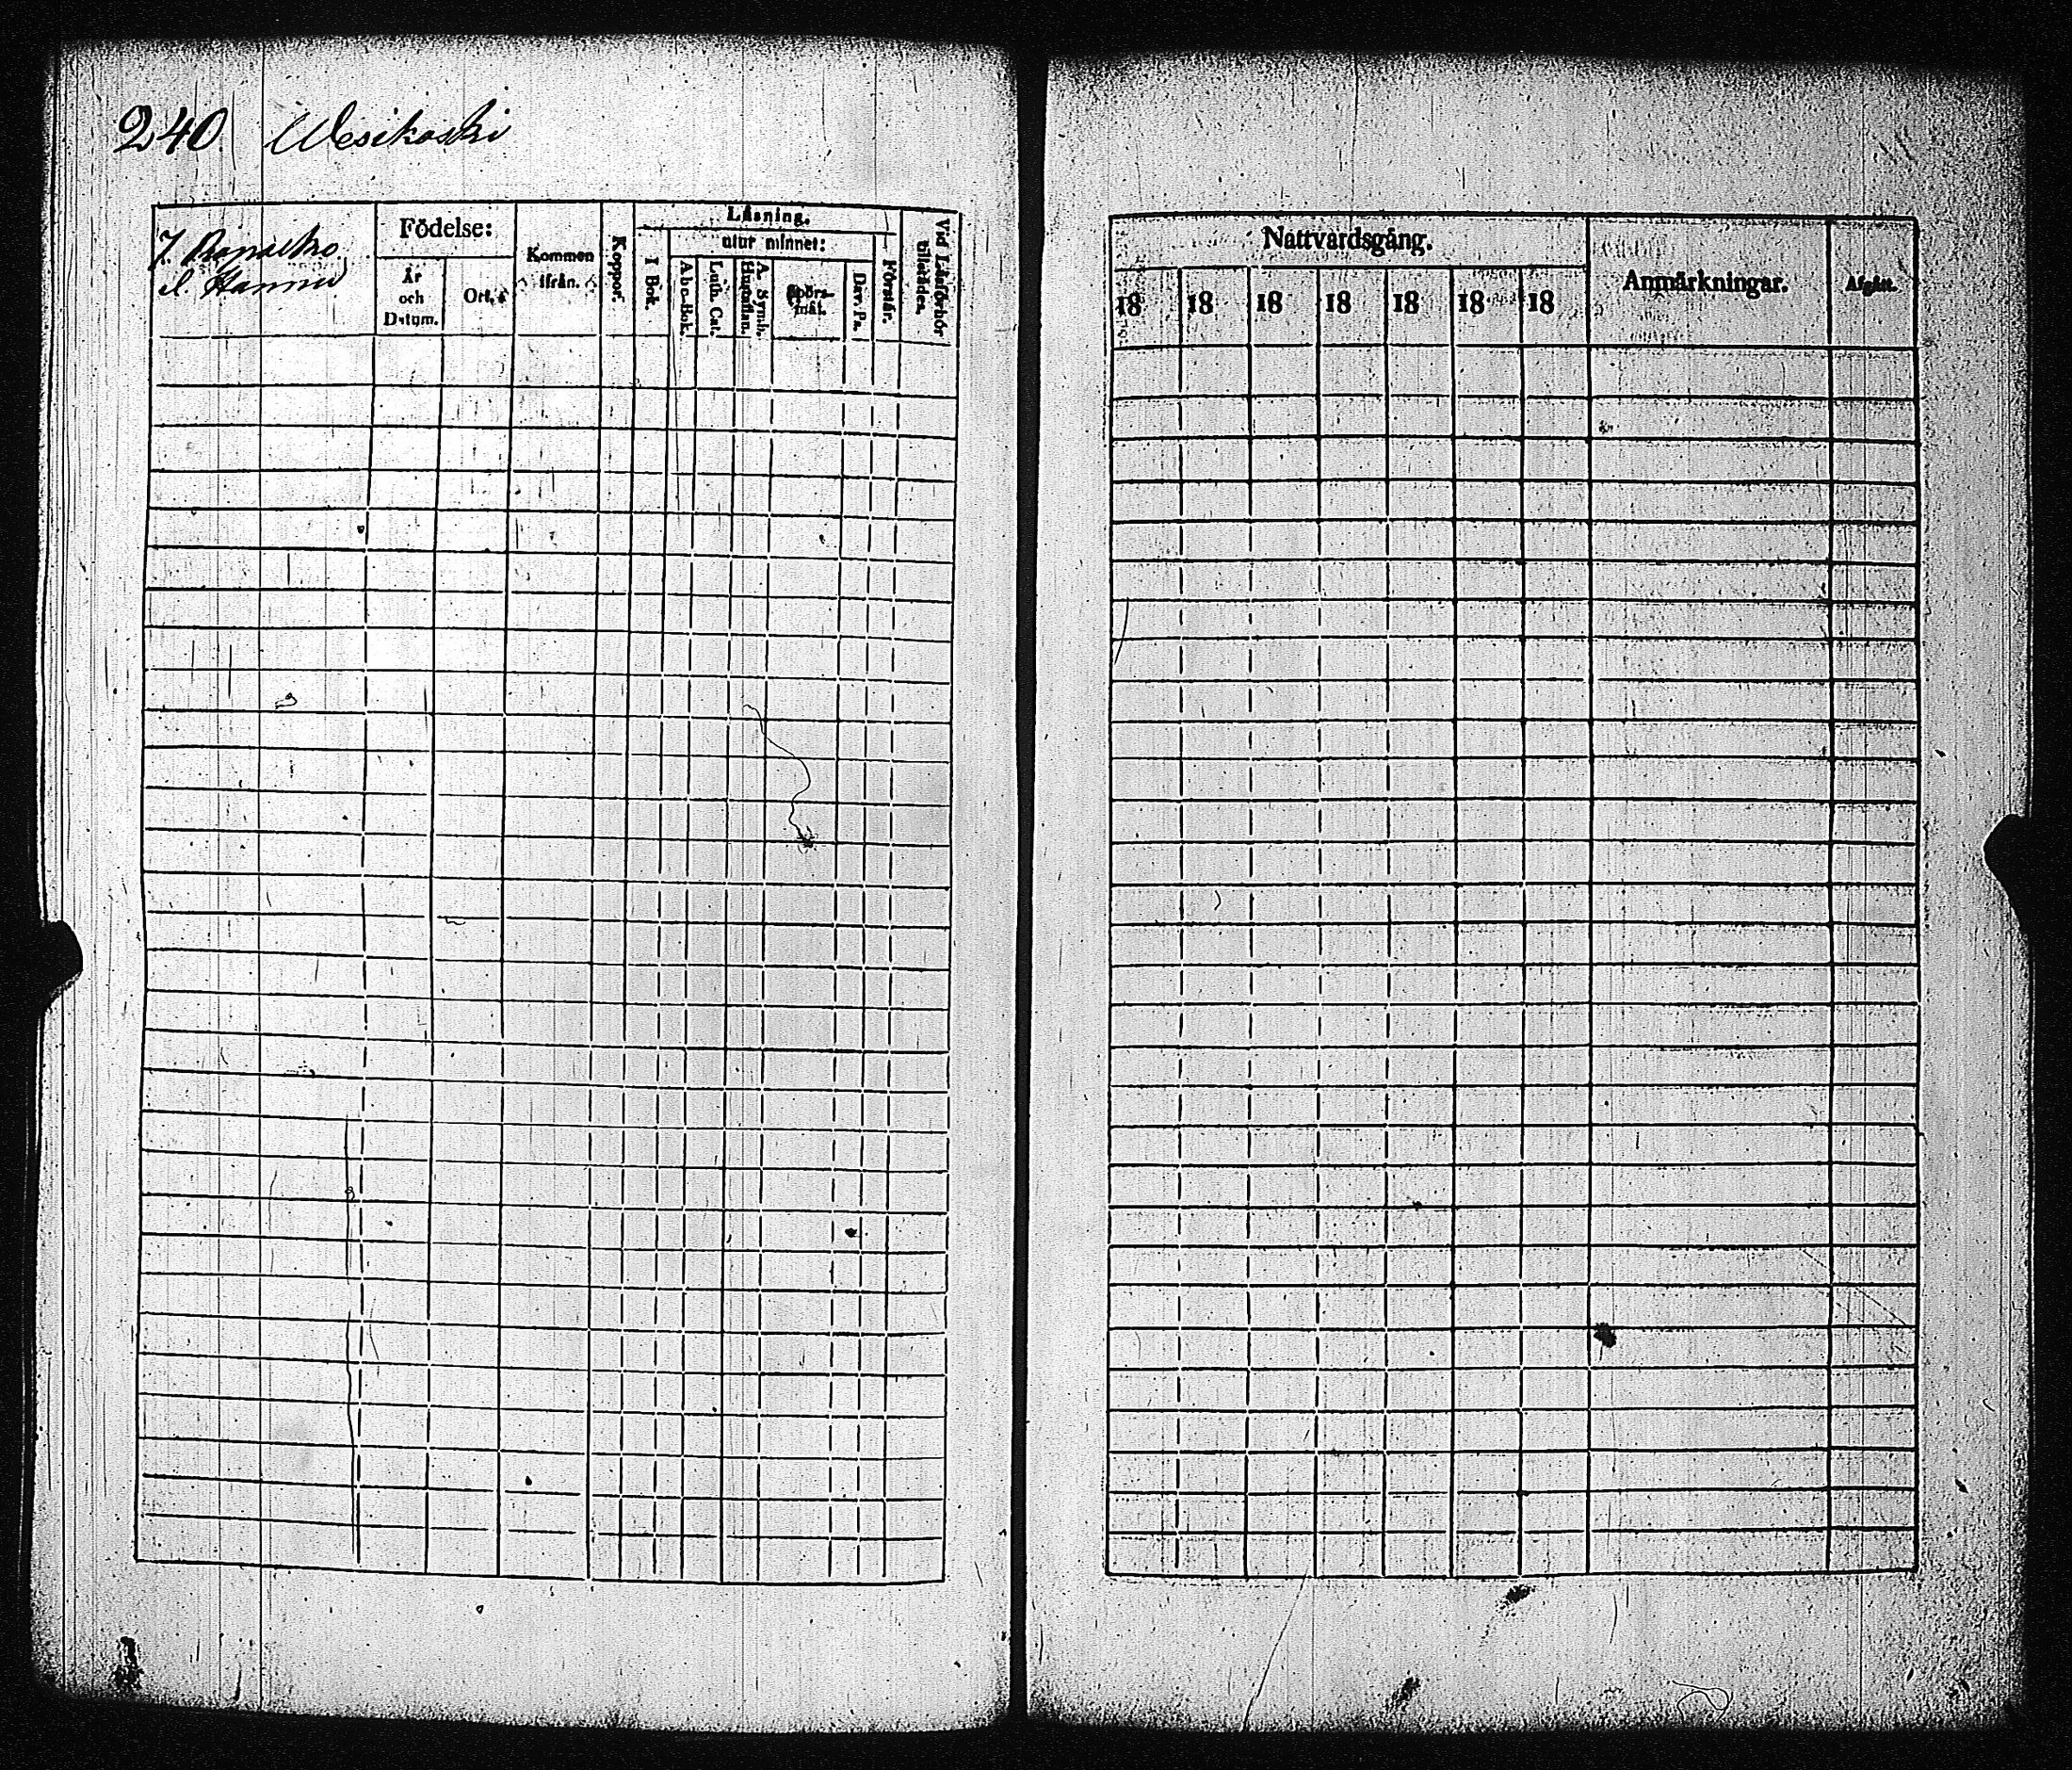 240 Wesikoski
7. Rapattio
el. Hannu
Födelse:
År
och
Datum.
Ort.
Kommen
ifrån.
Koppor.
Läsning.
I Bok.
utur minnet:
Abc-Bok.
Luth. Cat.
A. Symb.
Hustaflan.
Spörs-
mål.
Dav. Ps.
Förstår.
Vid Läsförhör
tillstädes.
Nattvardsgång.
18 18 18 18 18 18 18
Anmärkningar.
Afgått.